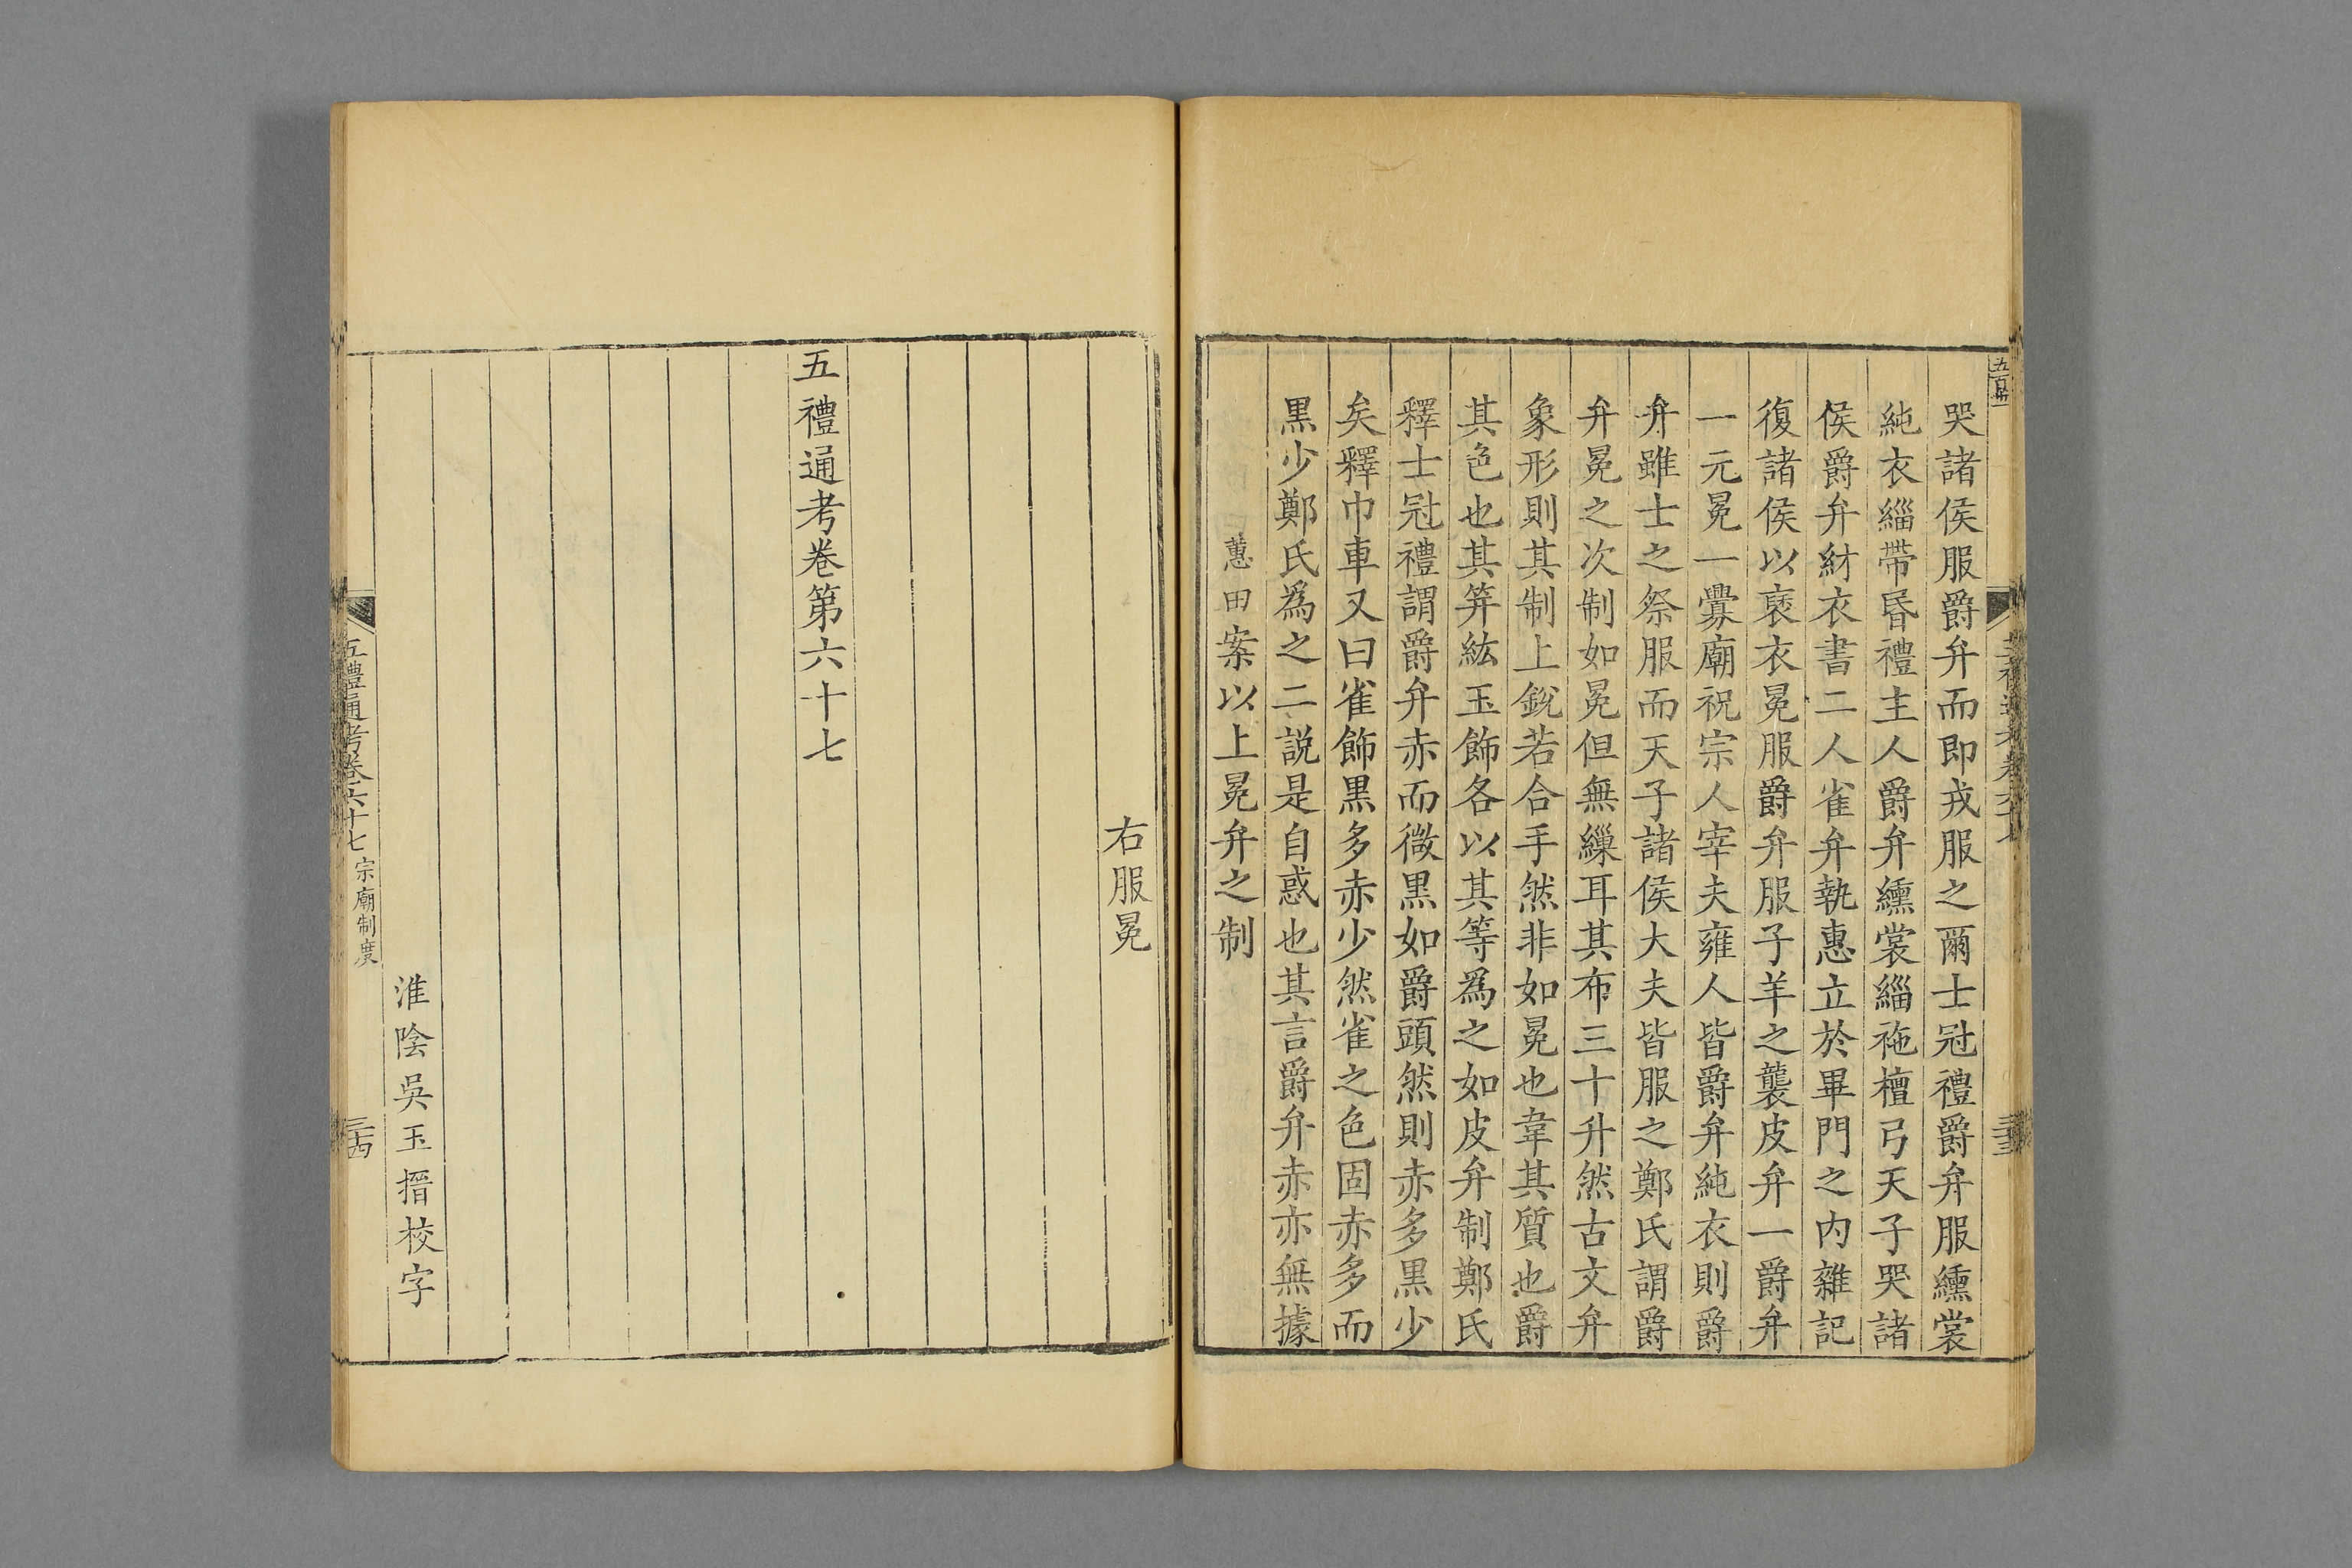 哭諸侯服爵弁而即戎服之爾士冠禮爵弁服纁裳
純衣緇帶昏禮主人爵弁纁裳緇袘檀弓天子哭諸
侯爵弁紂衣書二人雀弁執惠立於畢門之內雜記
復諸侯以褒衣冕服爵弁服子羊之襲皮弁一爵弁
一元冕一釁廟祝宗人宰夫雍人皆爵弁純衣則爵
弁雖士之祭服而天子諸侯大夫皆服之鄭氏謂爵
弁冕之次制如冕但無繅耳其布三十升然古文弁
象形則其制上銳若合手然非如冕也韋其質也爵
其色也其笄紘玉飾各以其等為之如皮弁制鄭氏
釋士冠禮謂爵弁赤而微黑如爵頭然則赤多黑少
矣釋巾車又曰雀飾黑多赤少然雀之色固赤多而
黑少鄭氏為之二說是自惑也其言爵弁赤亦無據
蕙田案以上冕弁之制
右服冕
五禮通考卷第六十七
淮陰吳玉搢校字
五禮通考卷六十七 宗廟制度
三十四